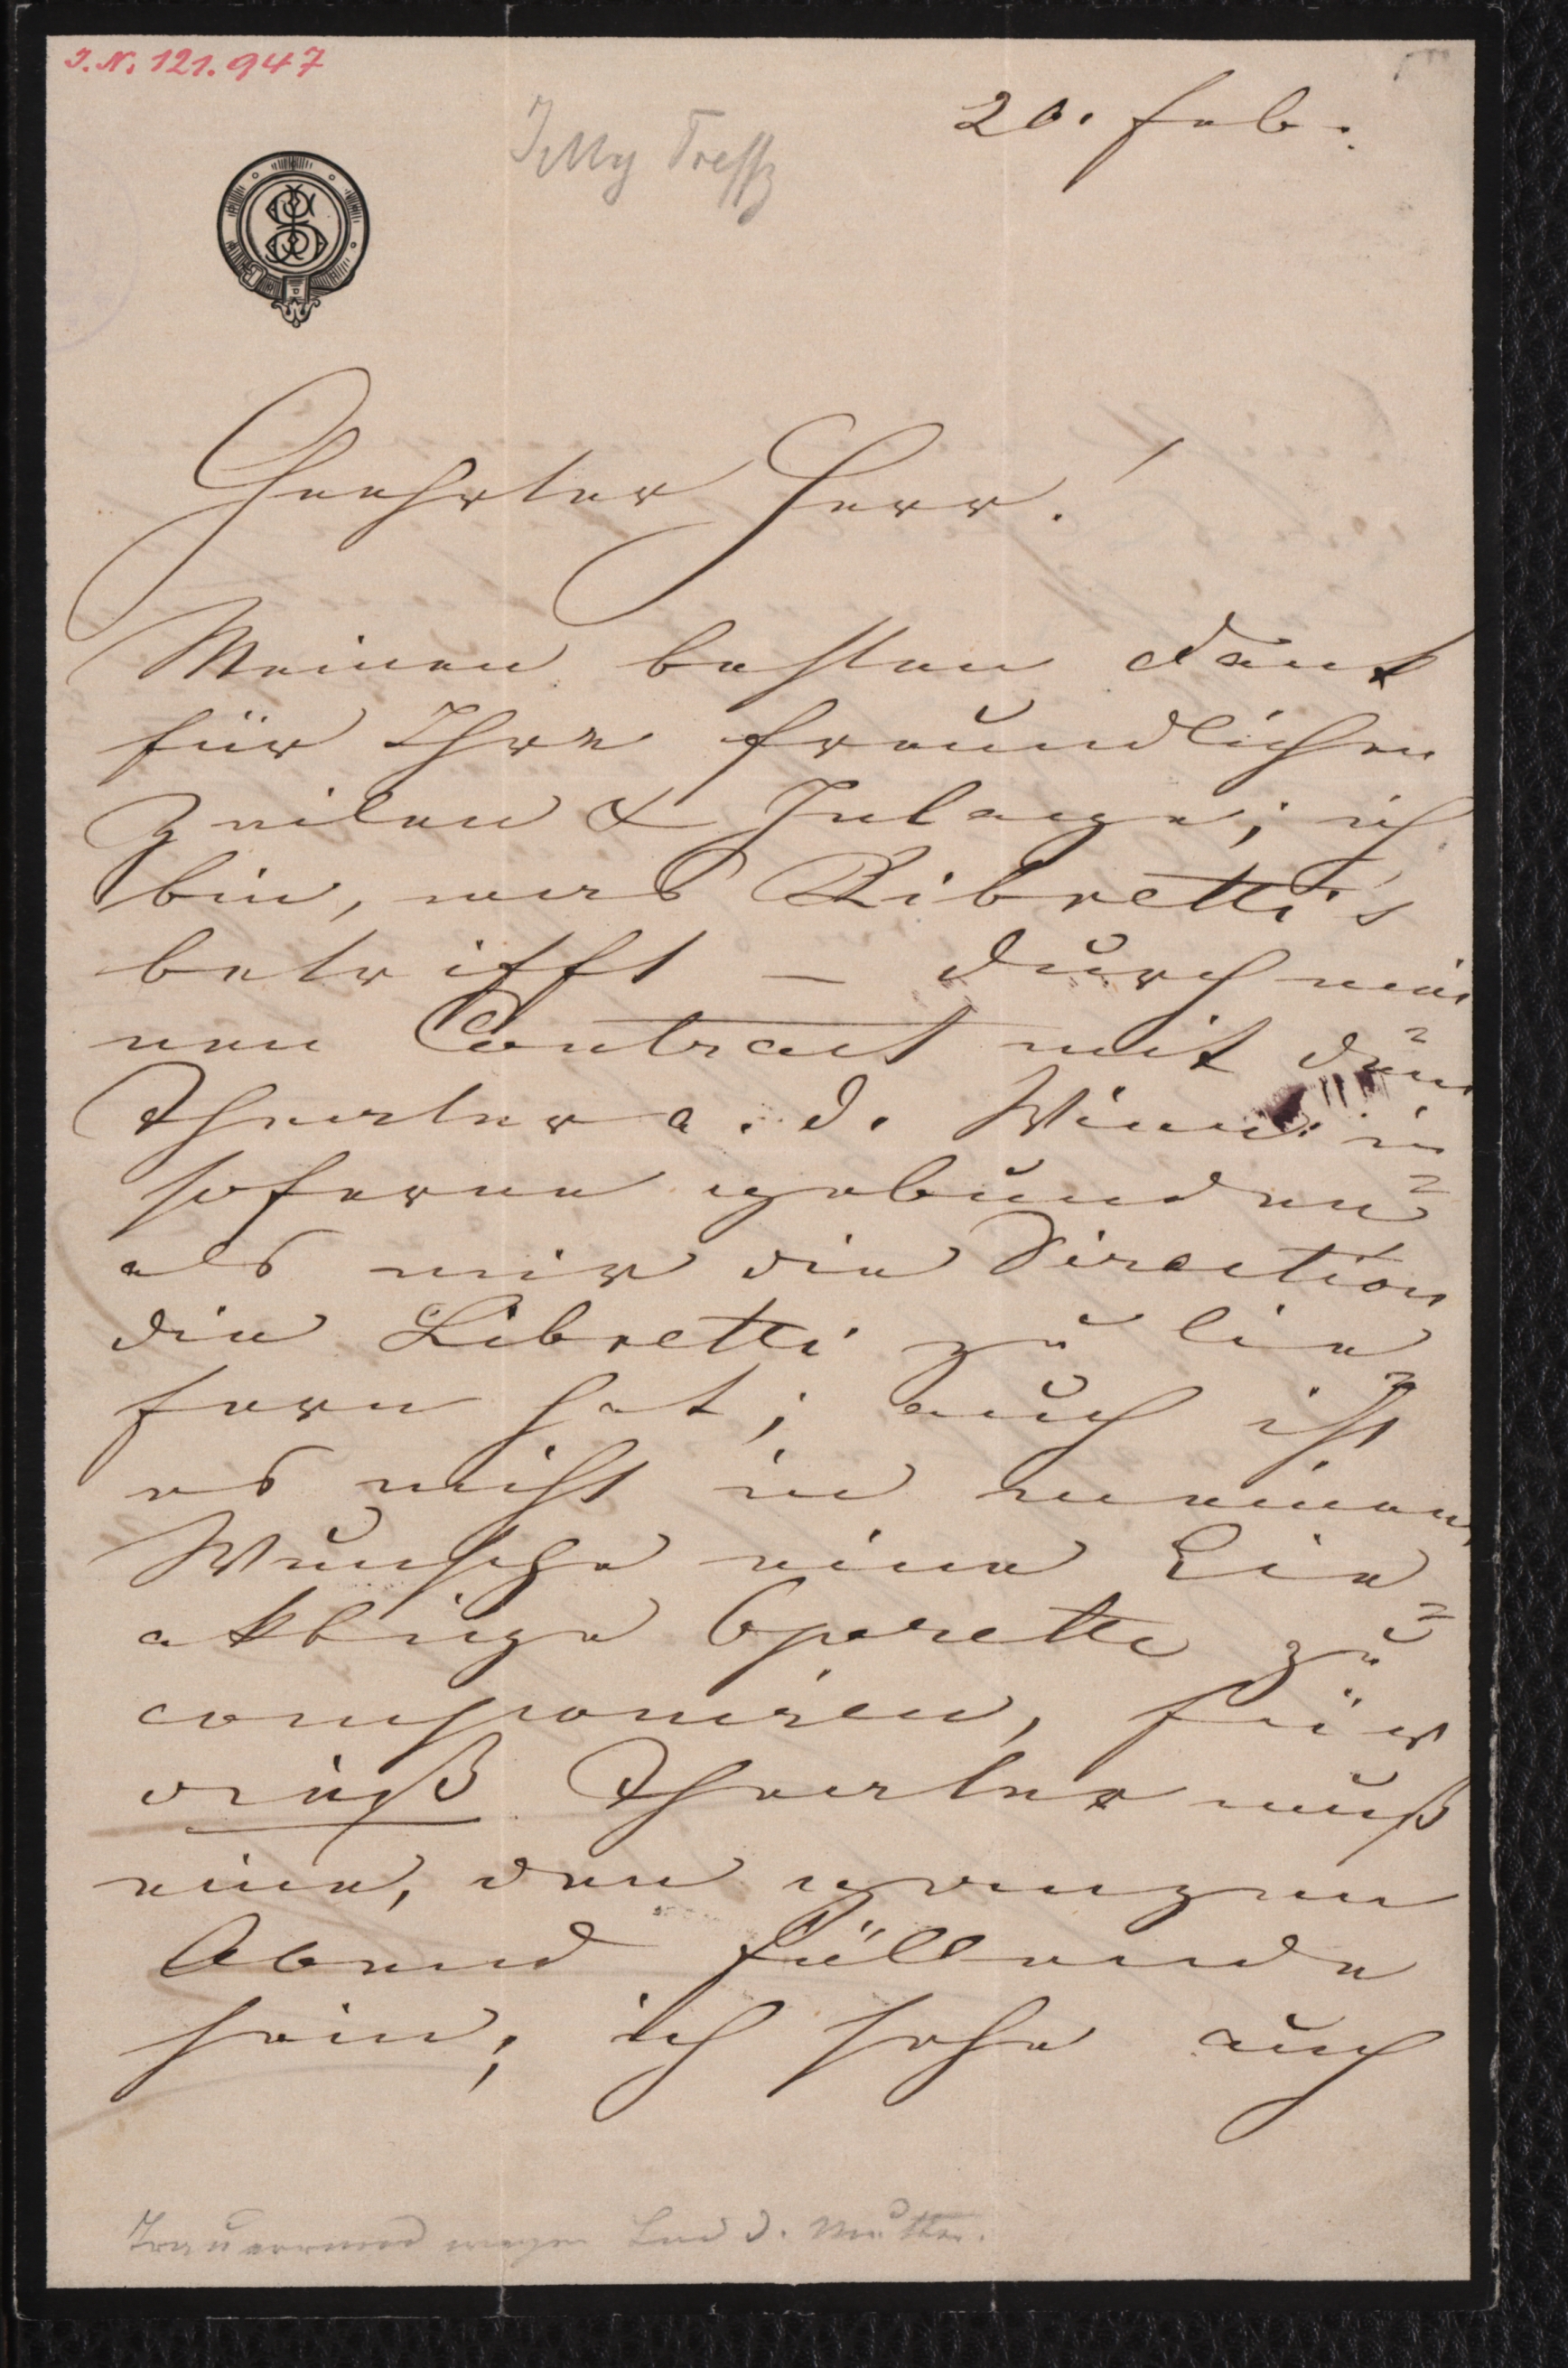 I.N. 121.947
20. Feb.
Jetty Treffz
JS
Geehrter Herr!
Meinen besten Dank
für Ihre freundlichen
Zeilen & Inlage; ich
bin, was Libretti's
betrifft – durch mei
nen Contract mit dem
Theater a. d. Wien in=
soferne gebunden
als mir die Direction=
die Libretti zu lie
fern hat; auch ist
es nicht in meinem=
Wunsche eine Ein
aktige Operette zu
componiren, für=
dieß Theater muß
eine, den ganzen
Abend füllende
sein; ich sehe auch
Trauerrand wegen Tod d. Mutter.